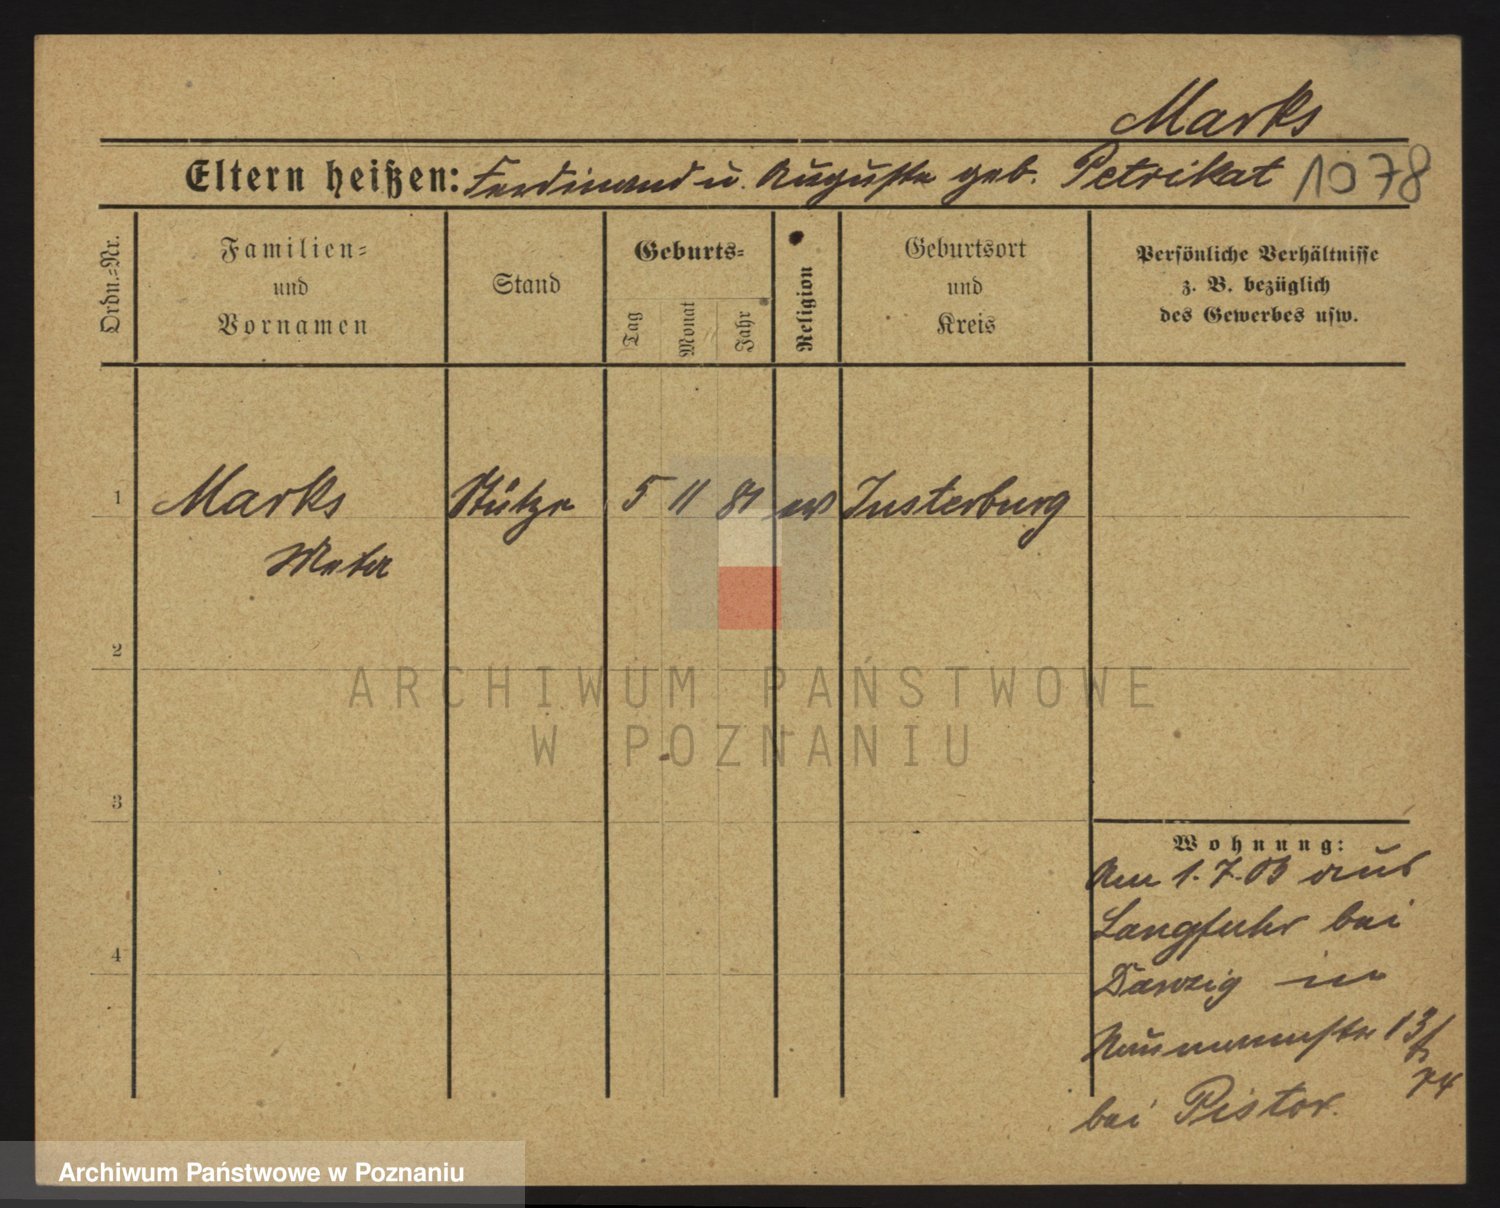 Marks
Eltern heißen: Ferdinand u. Auguste geb. Petrikat 1078
Ordn.=Nr.
Familien=
und
Vornamen
Stand
Geburts=
Tag
Monat
Jahr
Religion
Geburtsort
und
Kreis
Persönliche Verhältnisse
z. B. bezüglich
des Gewerbes usw.
1
Marks Stütze 5 11 81 ev Insterburg
Meta
2
ARCHIWUM PAŃSTWOWE
W POZNANIU
3
4
Wohnung:
Am 1.7.03 aus
Langfuhr bei
Danzig in
Naumannstr 13/
bei Pistor.
Archiwum Państwowe w Poznaniu